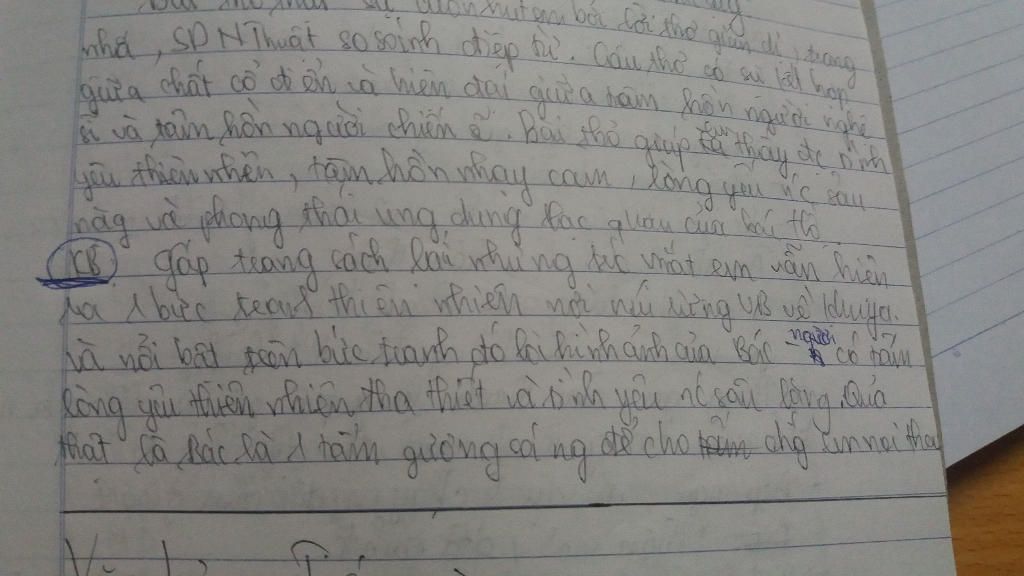 Bài thơ bởi lời thơ giản dị, trang
nhã, SDNThuật so sánh điệp từ. Câu thơ có sự kết hợp
giữa chất cổ điển và hiện đại giữa tâm hồn người nghệ
sĩ và tâm hồn người chiến sĩ. Bài thơ giúp ta thấy đc tình
yêu thiên nhiên, tâm hồn nhạy cảm, lòng yêu nc sâu
nặg và phong thái ung dung lạc quan của bác Hồ
KB Gấp trang sách lại nhưng trc mắt em vẫn hiện
ra 1 bức tranh thiên nhiên nơi núi rừng VB về khuya.
và nổi bật trên bức tranh đó là hình ảnh của Bác người có tấm
lòng yêu thiên nhiên tha thiết và tình yêu nc sâu lặng. Quả
thật là Bác là 1 tấm gương sáng để cho chg em noi theo